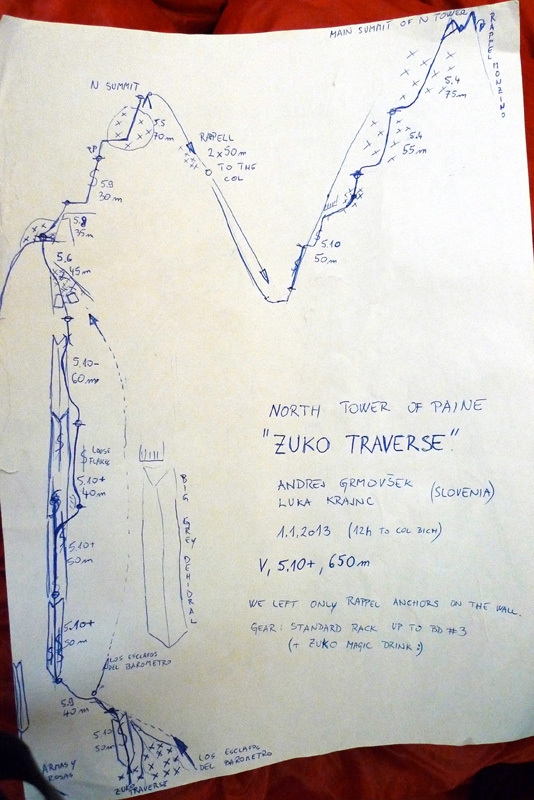 MAIN SUMMIT OF N TOWER
RAPPEL MONZINO
N SUMMIT
5.5
70m
RAPELL
2x50m
TO THE
COL
5.4
75m
5.4
55m
5.9
30m
5.8
35m
5.10
50m
5.6
45m
5.10-
60m
LOOSE
FLAKE
5.10+
40m
5.10+
50m
5.10+
50m
BIG GREY DEHIDRAL
NORTH TOWER OF PAINE
"ZUKO TRAVERSE"
ANDREJ GRMOVŠEK
LUKA KRAJNC
(SLOVENIA)
1.1.2013 (12h TO COL BICH)
V, 5.10+, 650m
WE LEFT ONLY RAPPEL ANCHORS ON THE WALL.
GEAR: STANDARD RACK UP TO BD #3
(+ ZUKO MAGIC DRINK :)
LOS ESCLAVOS
DEL BAROMETRO
5.9
40m
5.10
50m
LOS ESCLAVOS
DEL BAROMETRO
ARMAS Y
ROSAS
ZUKO TRAVERSE